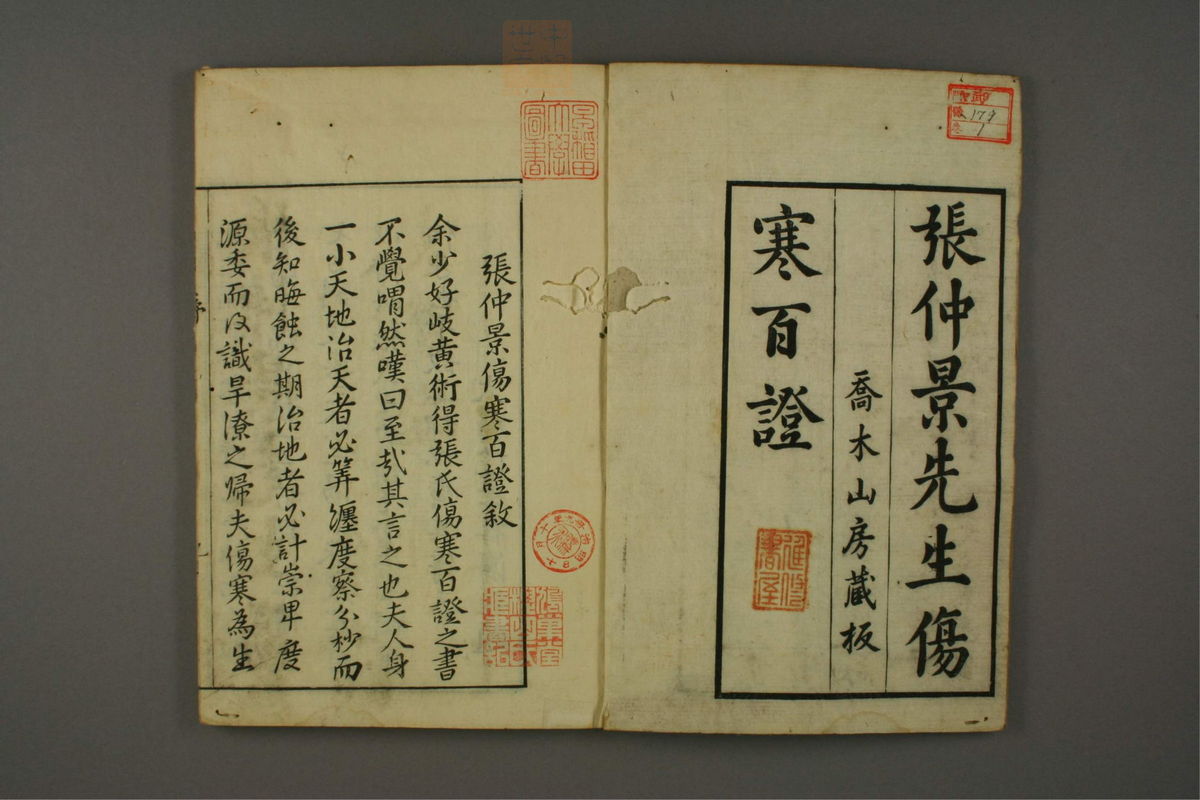 張仲景先生傷
喬木山房蔵板
寒百證
179
1
張仲景傷寒百證敘
余少好岐黄術得張氏傷寒百證之書
不覺喟然嘆曰至哉其言之也夫人身
一小天地治天者必筭纏度察分杪而
後知晦蝕之期治地者必計崇卑度
源委而後識旱潦之歸夫傷寒為生
序
早稲田
大學
圖書